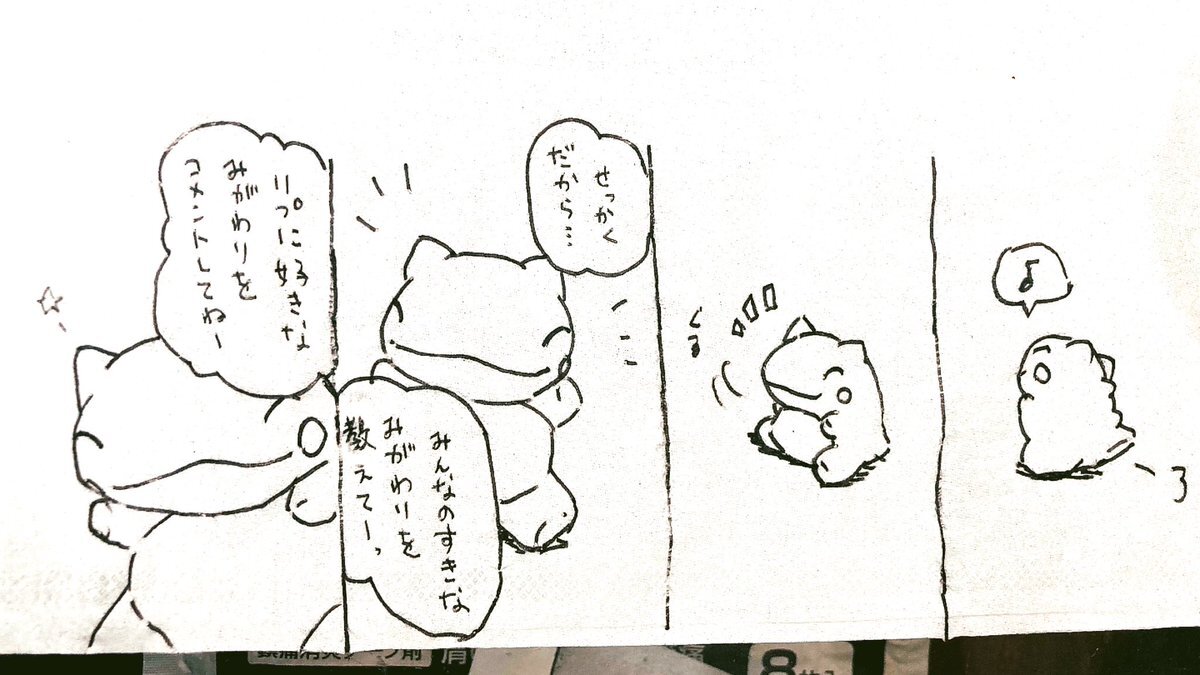 ♪
くる
せっかく
だから…
みんなのすきな
みがわりを
教えてーっ
リプに好きな
みがわりを
コメントしてねー
8